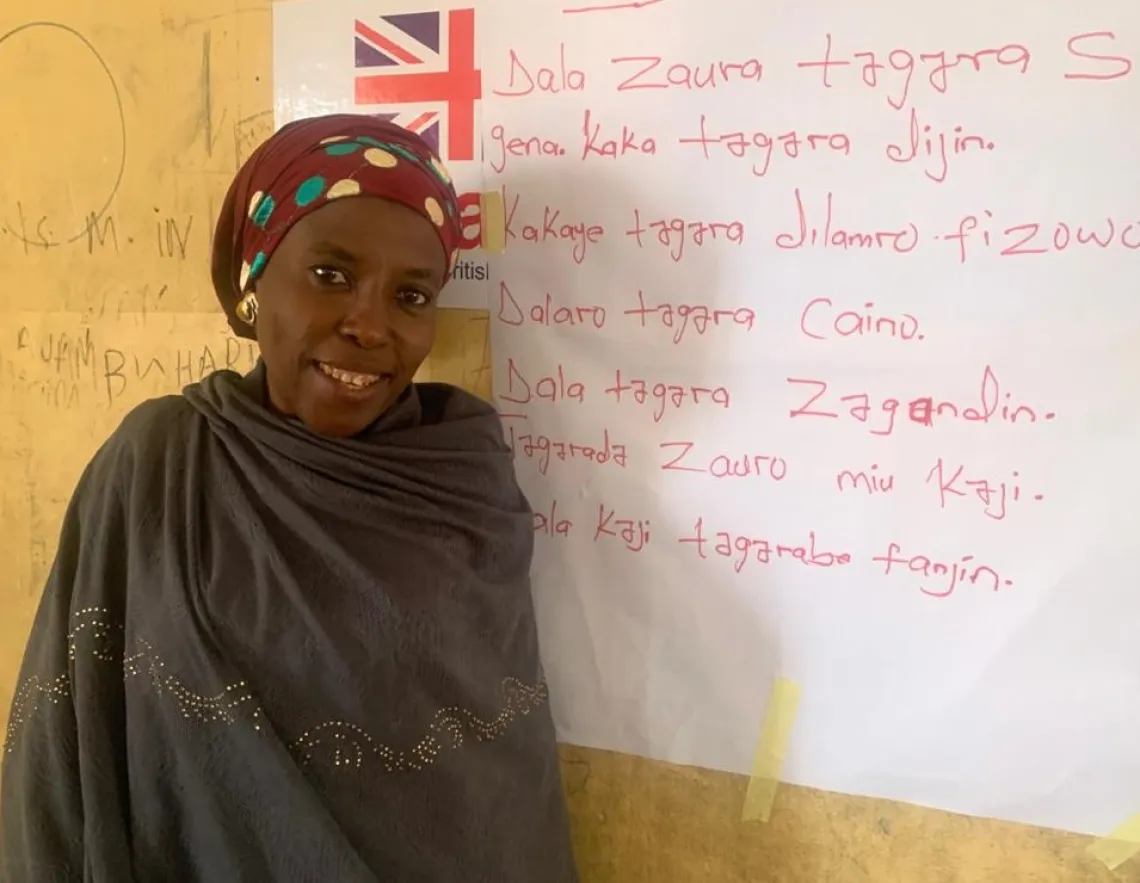 Dala Zaura tәgәra S
gena. Kaka tәgәra dijin.
Kakaye tәgәra dilamro fizowo
Dalaro tәgәra Caino.
Dala tәgәra Zagandin.
Tәgәradә Zauro miu Kәji.
ala Kәji tәgәrabe fanjin.
ritish
M. IN
BUHARI